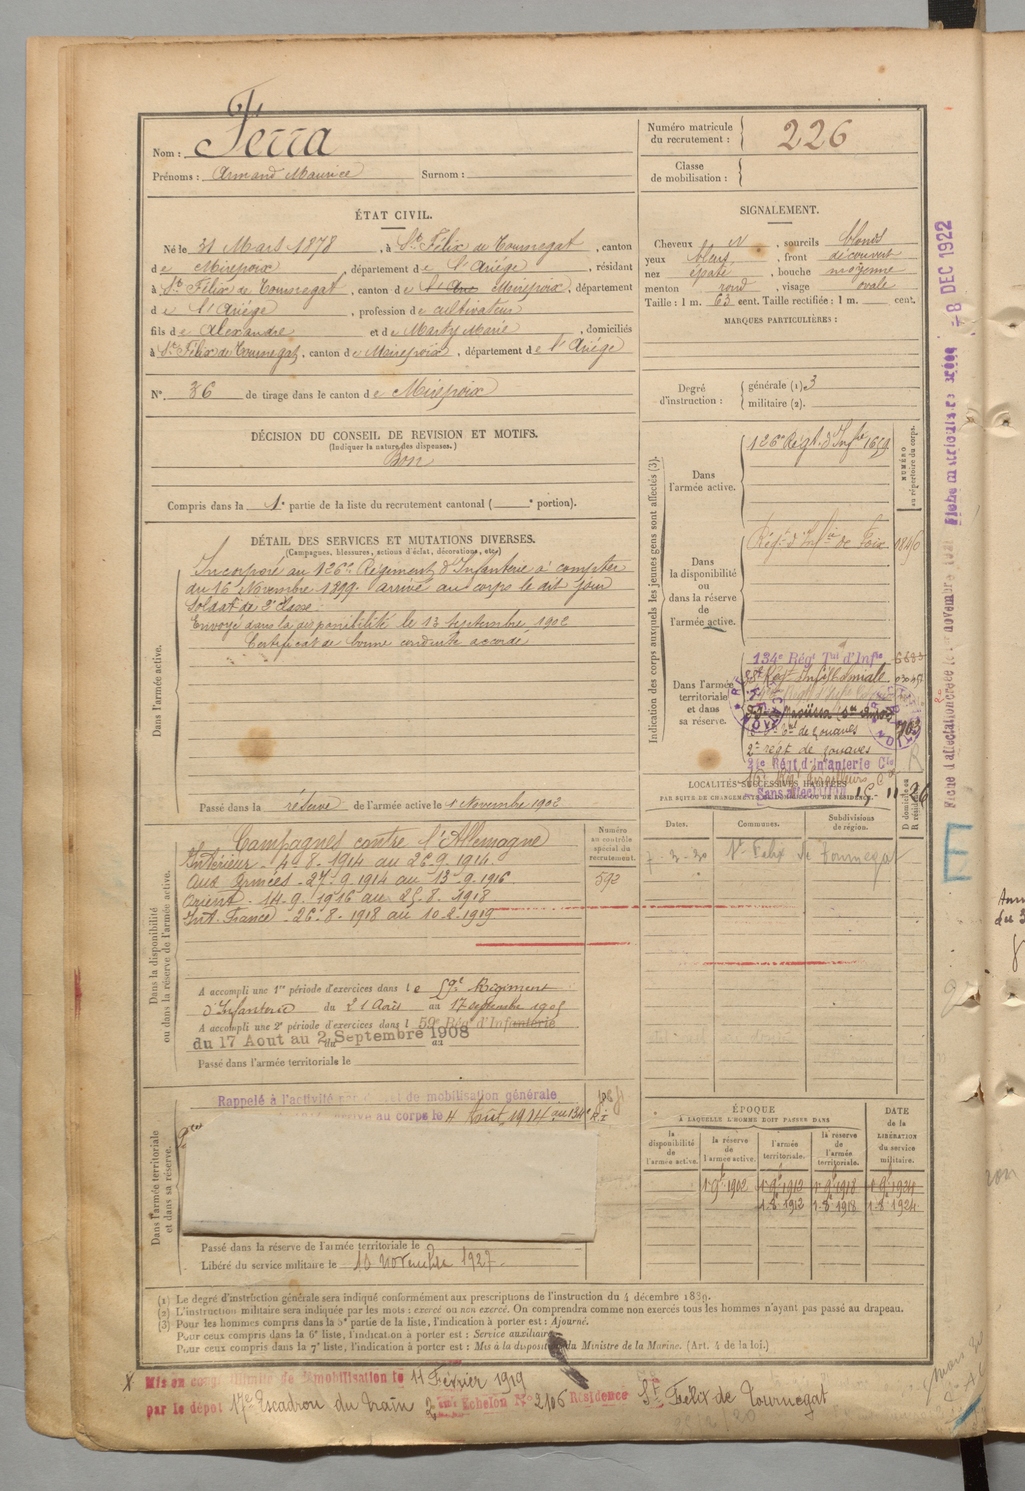 Nom : Ferra
Prénoms : Armand Maurice Surnom :
Numéro matricule du recrutement : 226
Classe de mobilisation :
ÉTAT CIVIL.
Né le 31 Mars 1878, à St Félix de Tournegat, canton
de Mirepoix, département de l'Ariége, résidant
à St Félix de Tournegat, canton de Mirepoix, département
de l'Ariége, profession de cultivateur
fils de Alexandre et de Marty Marie, domiciliés
à St Félix de Tournegat, canton de Mirepoix, département de l'Ariége
N° 36 de tirage dans le canton de Mirepoix
SIGNALEMENT.
Cheveux N, sourcils blonds
yeux bleus, front découvert
nez épaté, bouche moyenne
menton rond, visage ovale
Taille : 1 m. 63 cent. Taille rectifiée : 1 m. cent.
MARQUES PARTICULIÈRES :
Degré d'instruction : générale (1) 3
militaire (2).
DÉCISION DU CONSEIL DE REVISION ET MOTIFS.
(Indiquer la nature des dispenses.)
Bon
Compris dans la 1e partie de la liste du recrutement cantonal ( e portion).
DÉTAIL DES SERVICES ET MUTATIONS DIVERSES.
(Campagnes, blessures, actions d'éclat, décorations, etc.)
Dans l'armée active.
Incorporé au 126e Régiment d'Infanterie à compter
du 16 Novembre 1899. arrivé au corps le dit jour
Soldat de 2e classe.
Envoyé dans la disponibilité le 13 Septembre 1902
Certificat de bonne conduite accordé
Passé dans la réserve de l'armée active le 1 Novembre 1902
Indication des corps auxquels les jeunes gens sont affectés (3).
NUMÉRO au répertoire du corps.
Dans l'armée active.
126e Régt d'Infie 1659
Dans la disponibilité ou dans la réserve de l'armée active.
Régt d'Infie de Foix
Dans l'armée territoriale et dans sa réserve.
134e Régt Tal d'Infie
2e régt de zouaves
21e Régt d'Infanterie Cle
Sans affectation 15 11 26
Dans la disponibilité ou dans la réserve de l'armée active.
Campagnes contre l'Allemagne
Intérieur - 4.8.1914 au 26.9.1914.
Aux Armées - 27.9.1914 au 13.9.1916
Orient - 14.9.1916 au 25.8.1918
Int. France - 26.8.1918 au 10.2.1919
Numéro au contrôle spécial du recrutement.
592
A accompli une 1re période d'exercices dans le 59e Régiment
d'Infanterie du 21 Août au 17 septembre 1905
A accompli une 2e période d'exercices dans l 59e Régt d'Infanterie
du 17 Aout au 2 Septembre 1908
Passé dans l'armée territoriale le
LOCALITÉS SUCCESSIVES HABITÉES
PAR SUITE DE CHANGEMENTS DE DOMICILE OU DE RÉSIDENCE.
Dates. Communes. Subdivisions de région. D domicile ou R résidence.
St Felix de Tournegat
Dans l'armée territoriale et dans sa réserve.
Rappelé à l'activité mobilisation générale
au corps le 4 Aout 1914 au 134e R.I
Passé dans la réserve de l'armée territoriale le
Libéré du service militaire le 10 novembre 1927
ÉPOQUE
A LAQUELLE L'HOMME DOIT PASSER DANS
DATE de la LIBÉRATION du service militaire.
la disponibilité de l'armée active. la réserve de l'armée active. l'armée territoriale. la réserve de l'armée territoriale.
1 9bre 1902 1 9bre 1912 1 9bre 1918 1 9bre 1924
1-8-1912 1-8-1918 1-8-1924
(1) Le degré d'instruction générale sera indiqué conformément aux prescriptions de l'instruction du 4 décembre 1889.
(2) L'instruction militaire sera indiquée par les mots : exercé ou non exercé. On comprendra comme non exercés tous les hommes n'ayant pas passé au drapeau.
(3) Pour les hommes compris dans la 5e partie de la liste, l'indication à porter est : Ajourné.
Pour ceux compris dans la 6e liste, l'indication à porter est : Service auxiliaire.
Pour ceux compris dans la 7e liste, l'indication à porter est : Mis à la disposition du Ministre de la Marine. (Art. 4 de la loi.)
X Mis en congé illimité de démobilisation le 11 Février 1919
par le dépôt 17e Escadron du train 2ème Echelon N° 2106 Résidence St Félix de Tournegat
-8 DEC 1922
E